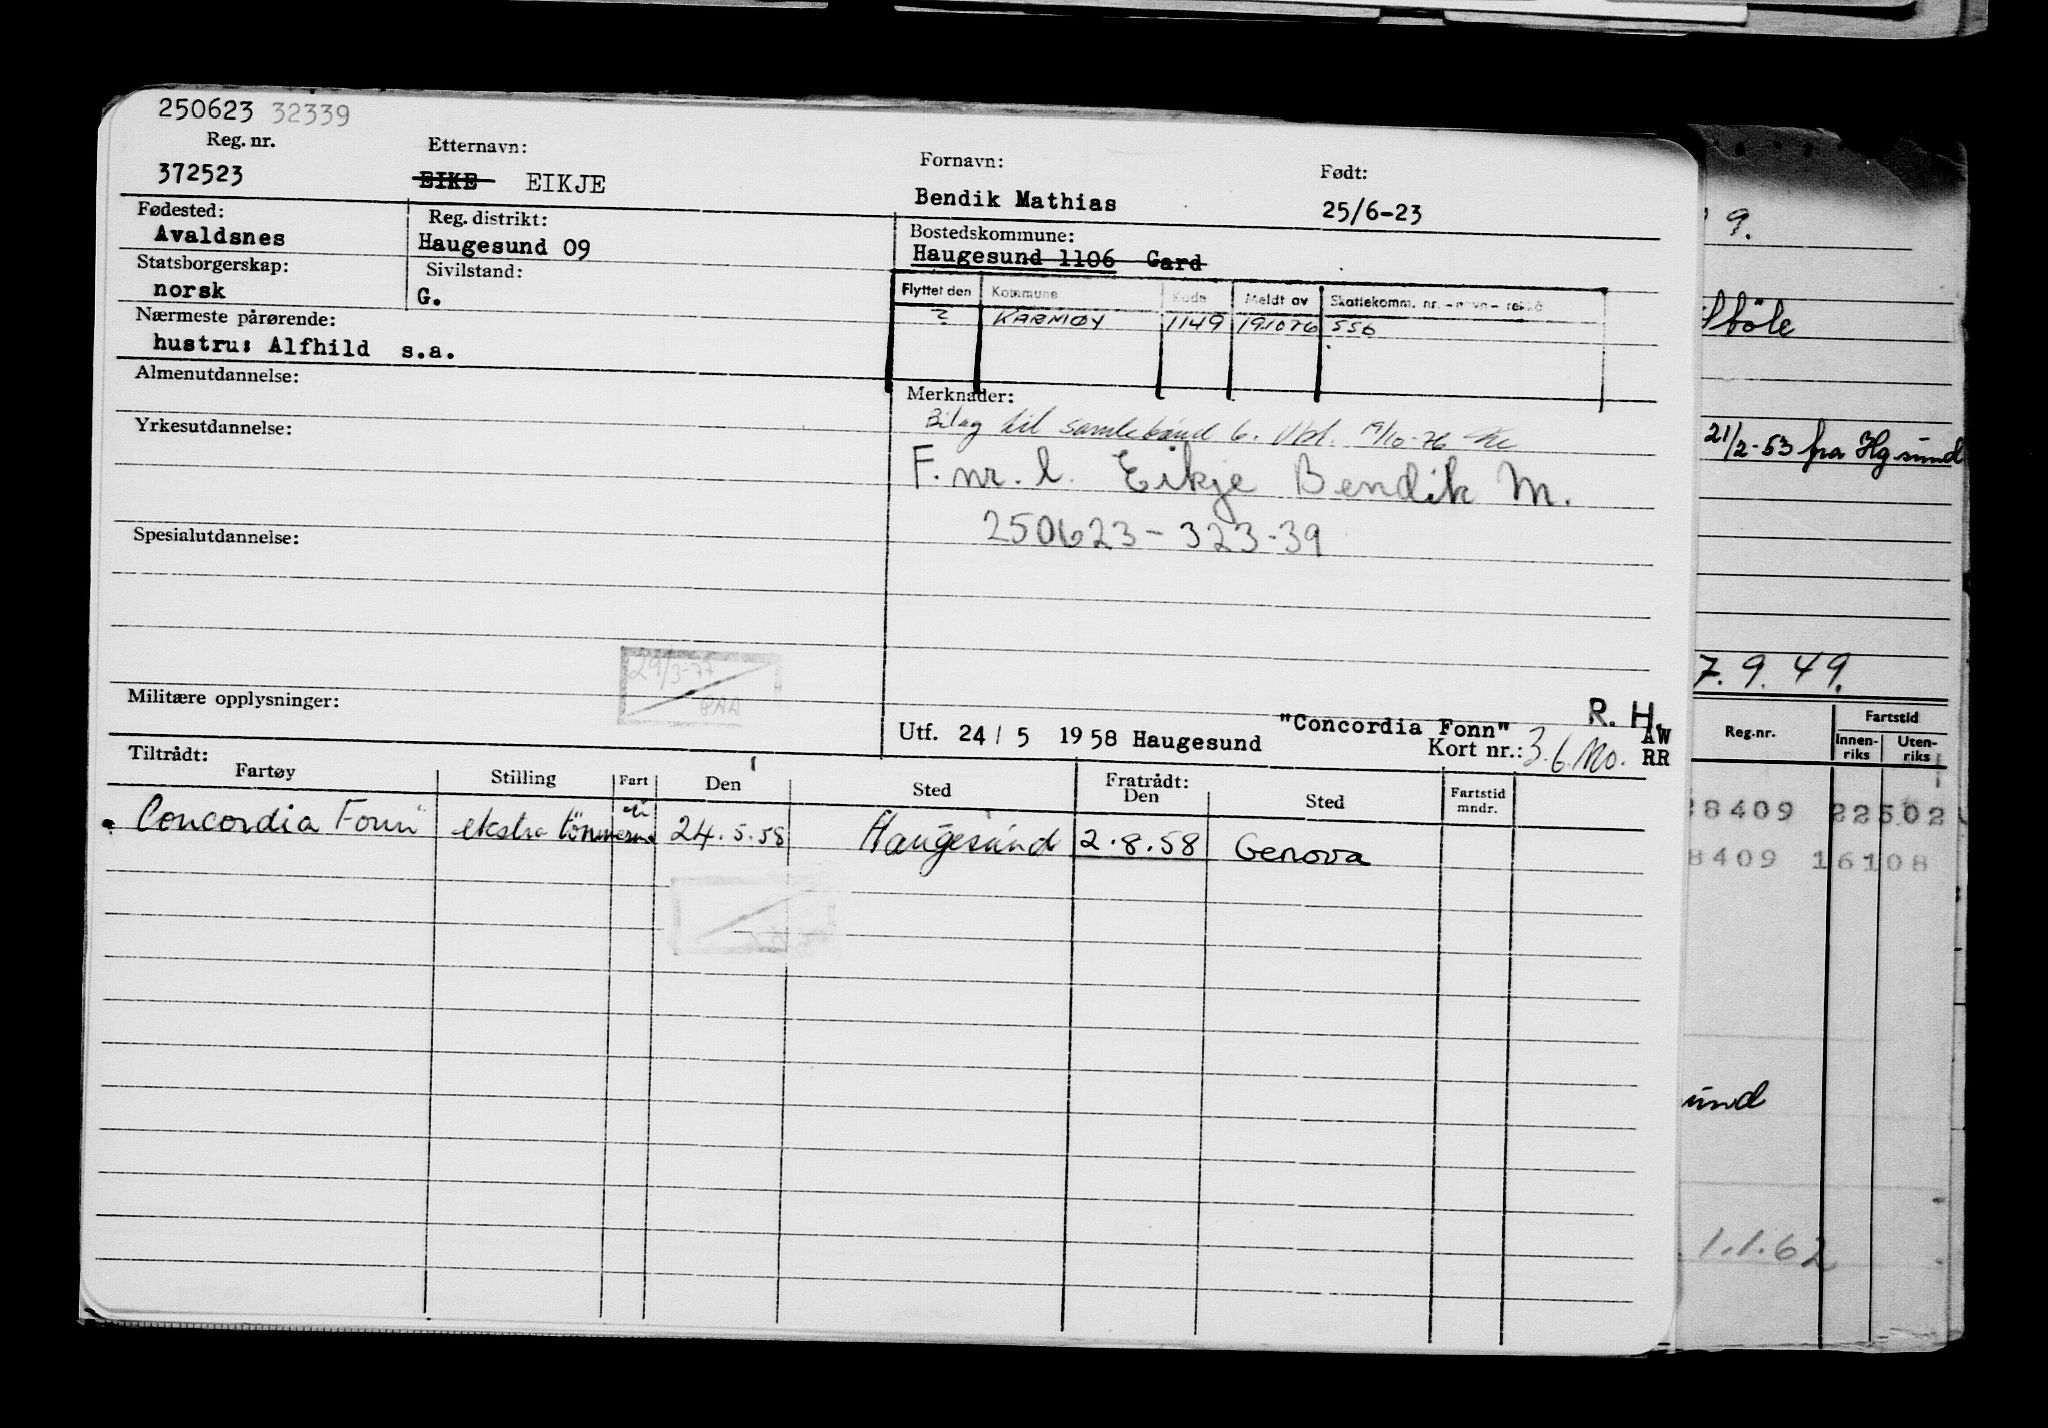 250623 32339
Reg. nr.
372523
Etternavn:
EIKE EIKJE
Fornavn:
Bendik Mathias
Født:
25/6-23
Fødested:
Avaldsnes
Reg. distrikt:
Haugesund 09
Bostedskommune:
Haugesund 1106 Gard
Statsborgerskap:
norsk
Sivilstand:
G.
Flyttet den Kommune Kode Meldt av Skattekomm. nr.
? KARMØY 1149 191076 556
Nærmeste pårørende:
hustru: Alfhild s.a.
Almenutdannelse:
Merknader:
Bilag til samlebånd 6. 19/10-76
F. nr. l. Eikje Bendik M.
250623-323-39
Yrkesutdannelse:
Spesialutdannelse:
29/3-77
Militære opplysninger:
R. H.
Utf. 24/5 1958 Haugesund "Concordia Fonn" AW
Kort nr.: 3.6. Mo. RR
Tiltrådt:
Fartøy Stilling Fart Den Sted
Fratrådt:
Den Sted Fartstid
mndr.
Concordia Fonn ekstra tömmerm. 24.5.58 Haugesund 2.8.58 Genova
9.
21/2-53 fra Hgsund
7.9.49.
Reg.nr. Fartstid
Innen-
riks Uten-
riks
8409 22502
8409 16108
sund
1.1.62